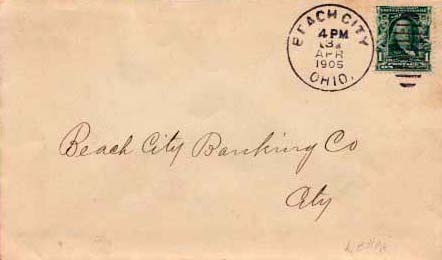 BEACH CITY
4 PM
3
APR
1905
OHIO.
1 1
Beach City Banking Co
City